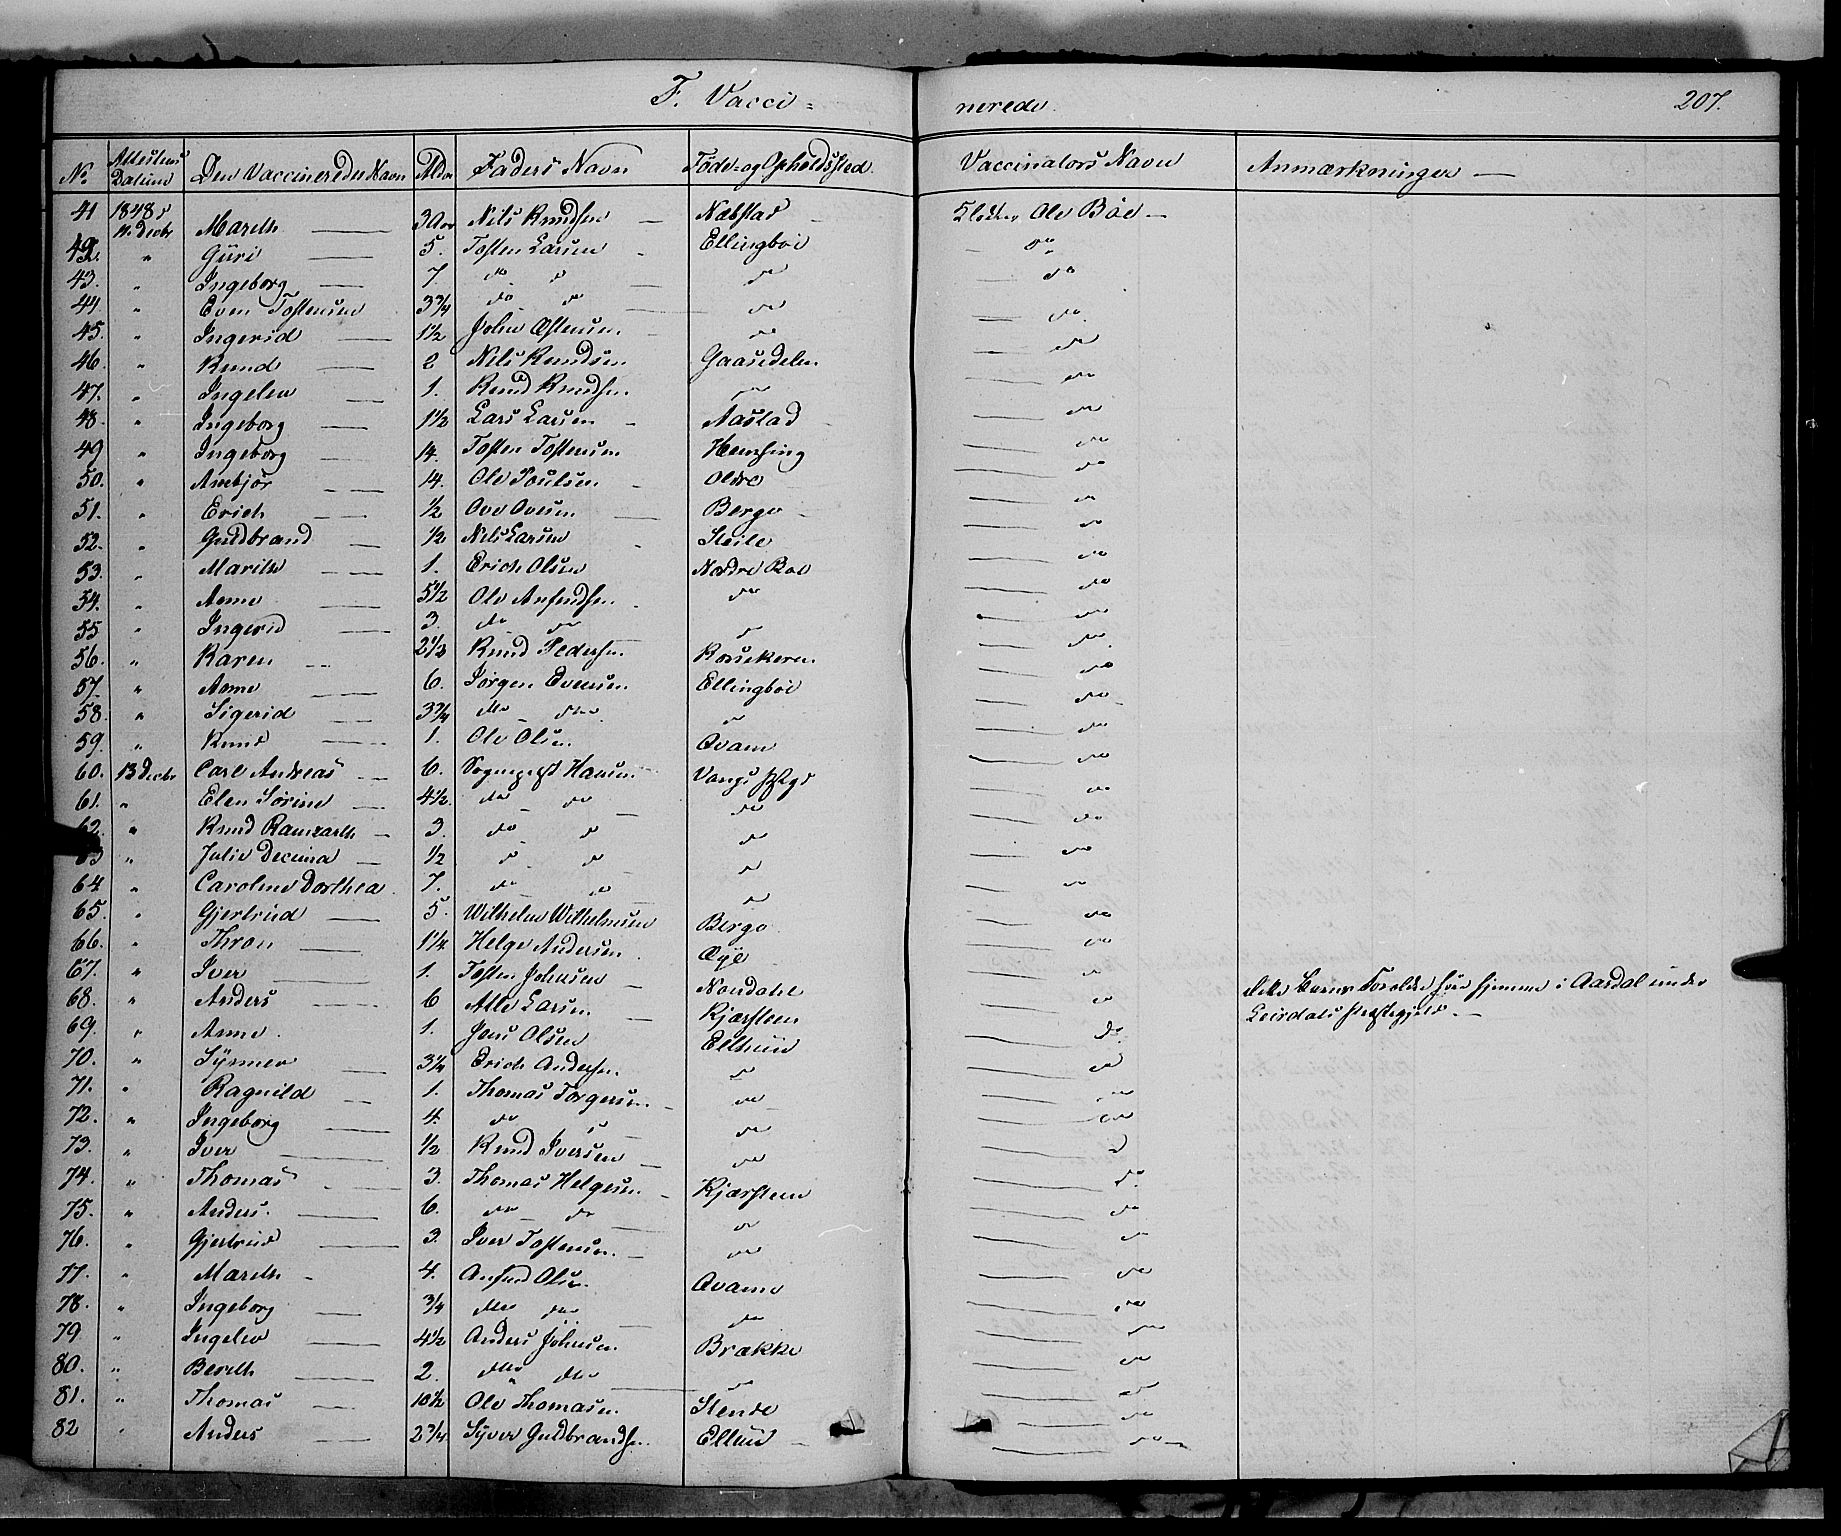 F. Vacci= nerede. 207.
No. Attestens Datum Den Vaccineredes Navn Alder Faders Navn Føde- og Opholdssted. Vaccinators Navn Anmærkninger
41 1848 11. Decbr Marith 3 Aar Nils Knudsen Næbstad Klokker Ole Böe
42. " Güri 5. Tosten Larsen Ellingböe do
43. " Ingeborg 7. do do do do
44. " Even Tostensen 3 3/4 do do do do
45. " Ingerid 1 1/2 John Østensen do do
46. " Knud 2 Nils Knudsen Gaasedelen do
47. " Ingelev 1. Knud Knudsen do do
48. " Ingeborg 1 1/2 Lars Larsen Aastad do
49 " Ingeborg 14. Tosten Tostensen Hemsing do
50. " Anbjör 14. Ole Poulsen Oldre do
51. " Erich 1/2 Ove Ovesen Berge do
52. " Guldbrand 1/2 Nils Larsen Steile do
53. " Marith 1. Erich Olsen Nordre Boe do
54. " Anne 5 1/2 Ole Anfindsen do do
55 " Ingerid 3. do do do do
56. " Karen 2 1/2 Knud Pedersen Kvissekeren do
57. " Anne 6. Jørgen Evensen Ellingböe do
58. " Sigerid 3 3/4 do do do do
59. " Knud 1. Ole Olsen Qvame do
60. 13 Decbr Carl Andreas 6. Sognepræst Hansen Vangs Præstegd do
61. " Elen Sørine 4 1/2. do do do do
62. " Knud Ramzarth 3. do do do do
63 " Julie Decima 1/2 do do do do
64 " Caroline Dorthea 7. do do do do
65. " Gjertrud 5. Wilhelm Wilhelmsen Berge do
66. " Thron 1 1/4 Helge Andersen Öye do
67. " Iver 1. Tosten Johnsen Nordahl do Dette Barns Forældre høre hjemme i Aardal under
68. " Anders 6 Atle Larsen Kjærsteen do Leirdals Præstegjeld.
69. " Anne 1. Jens Olsen Elthün do
70. " Synnev 3 1/4 Erich Andersen do do
71. " Ragnild 1. Thomas Torgersen do do
72. " Ingeborg 4. do do do do
73. " Iver 1/2 Knud Iversen do do
74. " Thomas 3. Thomas Helgesen Kjærsteen do
75. " Anders 6. do do do do
76. " Gjertrud 3. Iver Tostensen do do
77. " Marith 4. Anfind Olsen Qvame do
78. " Ingeborg 3/4 do do do do
79 " Ingelev 4 1/2 Anders Johnsen Brække do
80. " Berith 2. do do do do
81. " Thomas 10 1/2 Ole Thomasen Stende do
82 " Anders 2 3/4 Syver Guldbrandsen Eltün do